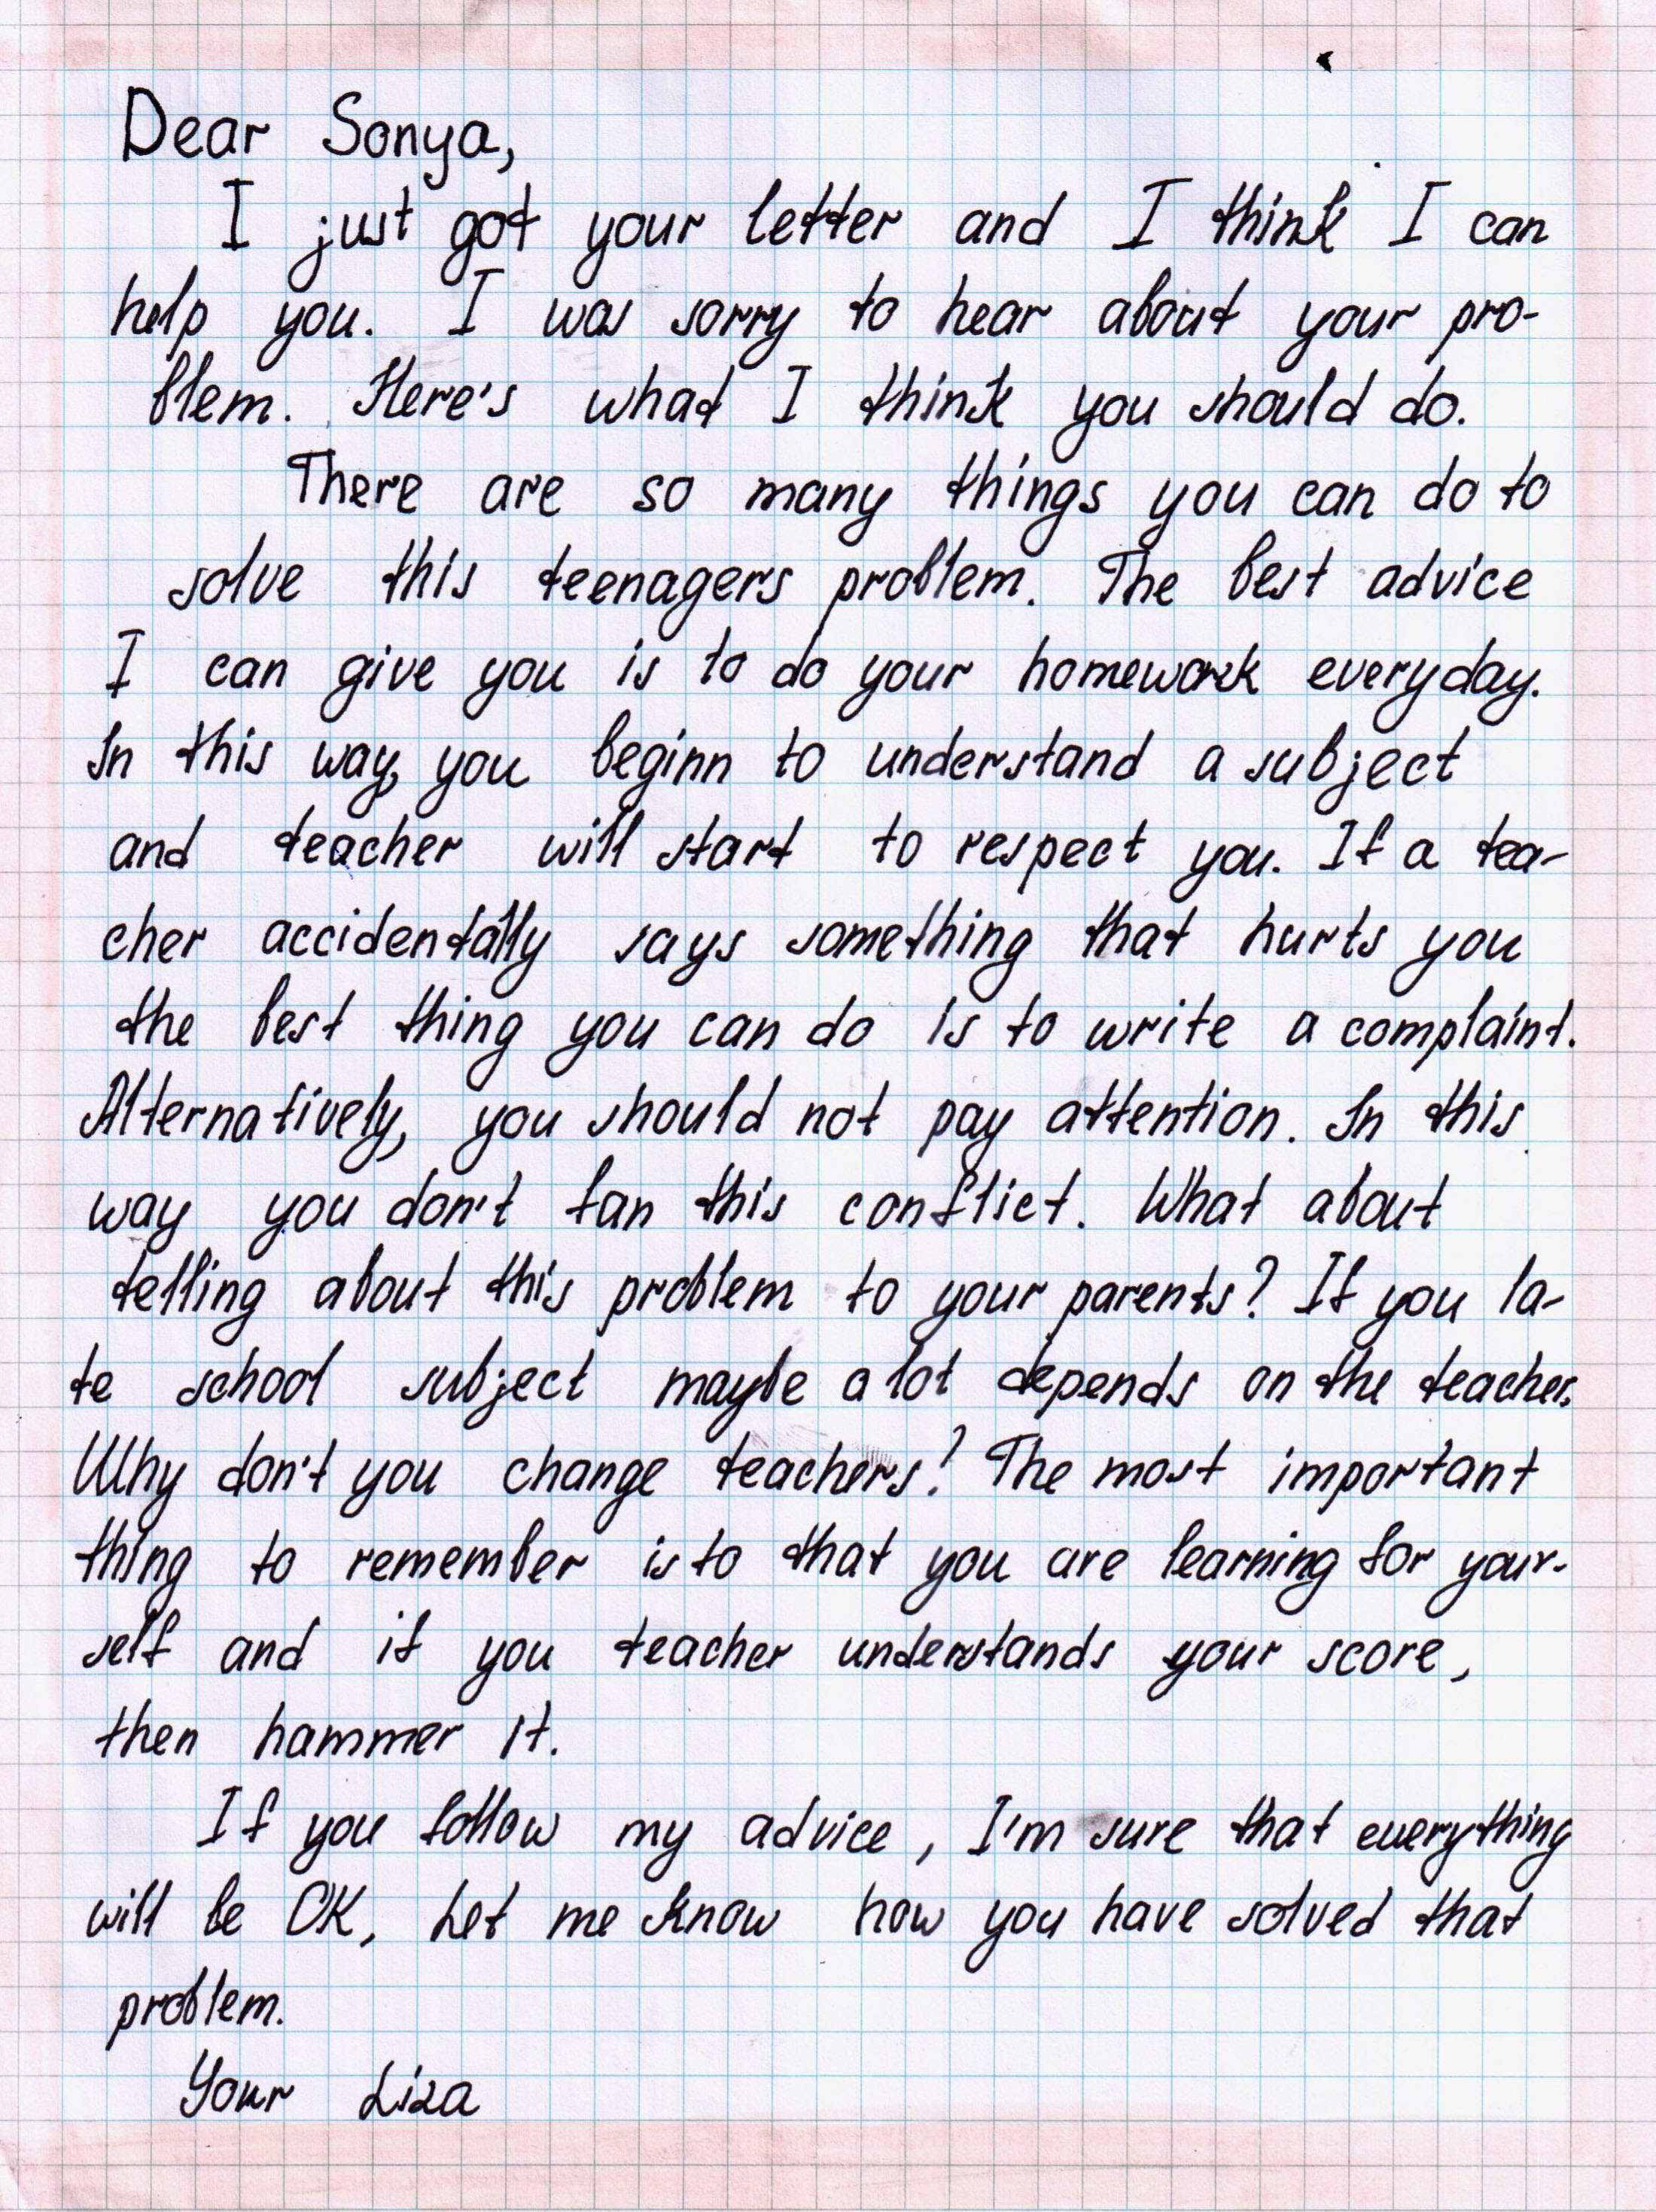 Dear Sonya,
I just got your letter and I think I can
help you. I was sorry to hear about your pro-
blem. Here's what I think you should do.
There are so many things you can do to
solve this teenagers problem. The best advice
I can give you is to do your homework everyday.
In this way, you beginn to understand a subject
and teacher will start to respect you. If a tea-
cher accidentally says something that hurts you
the best thing you can do is to write a complaint.
Alternatively, you should not pay attention. In this
way you don't fan this conflict. What about
telling about this problem to your parents? If you la-
te school subject maybe a lot depends on the teacher.
Why don't you change teachers? The most important
thing to remember is to that you are learning for your-
self and if you teacher understands your score,
then hammer it.
If you follow my advice, I'm sure that everything
will be OK, Let me know how you have solved that
problem.
Your Liza